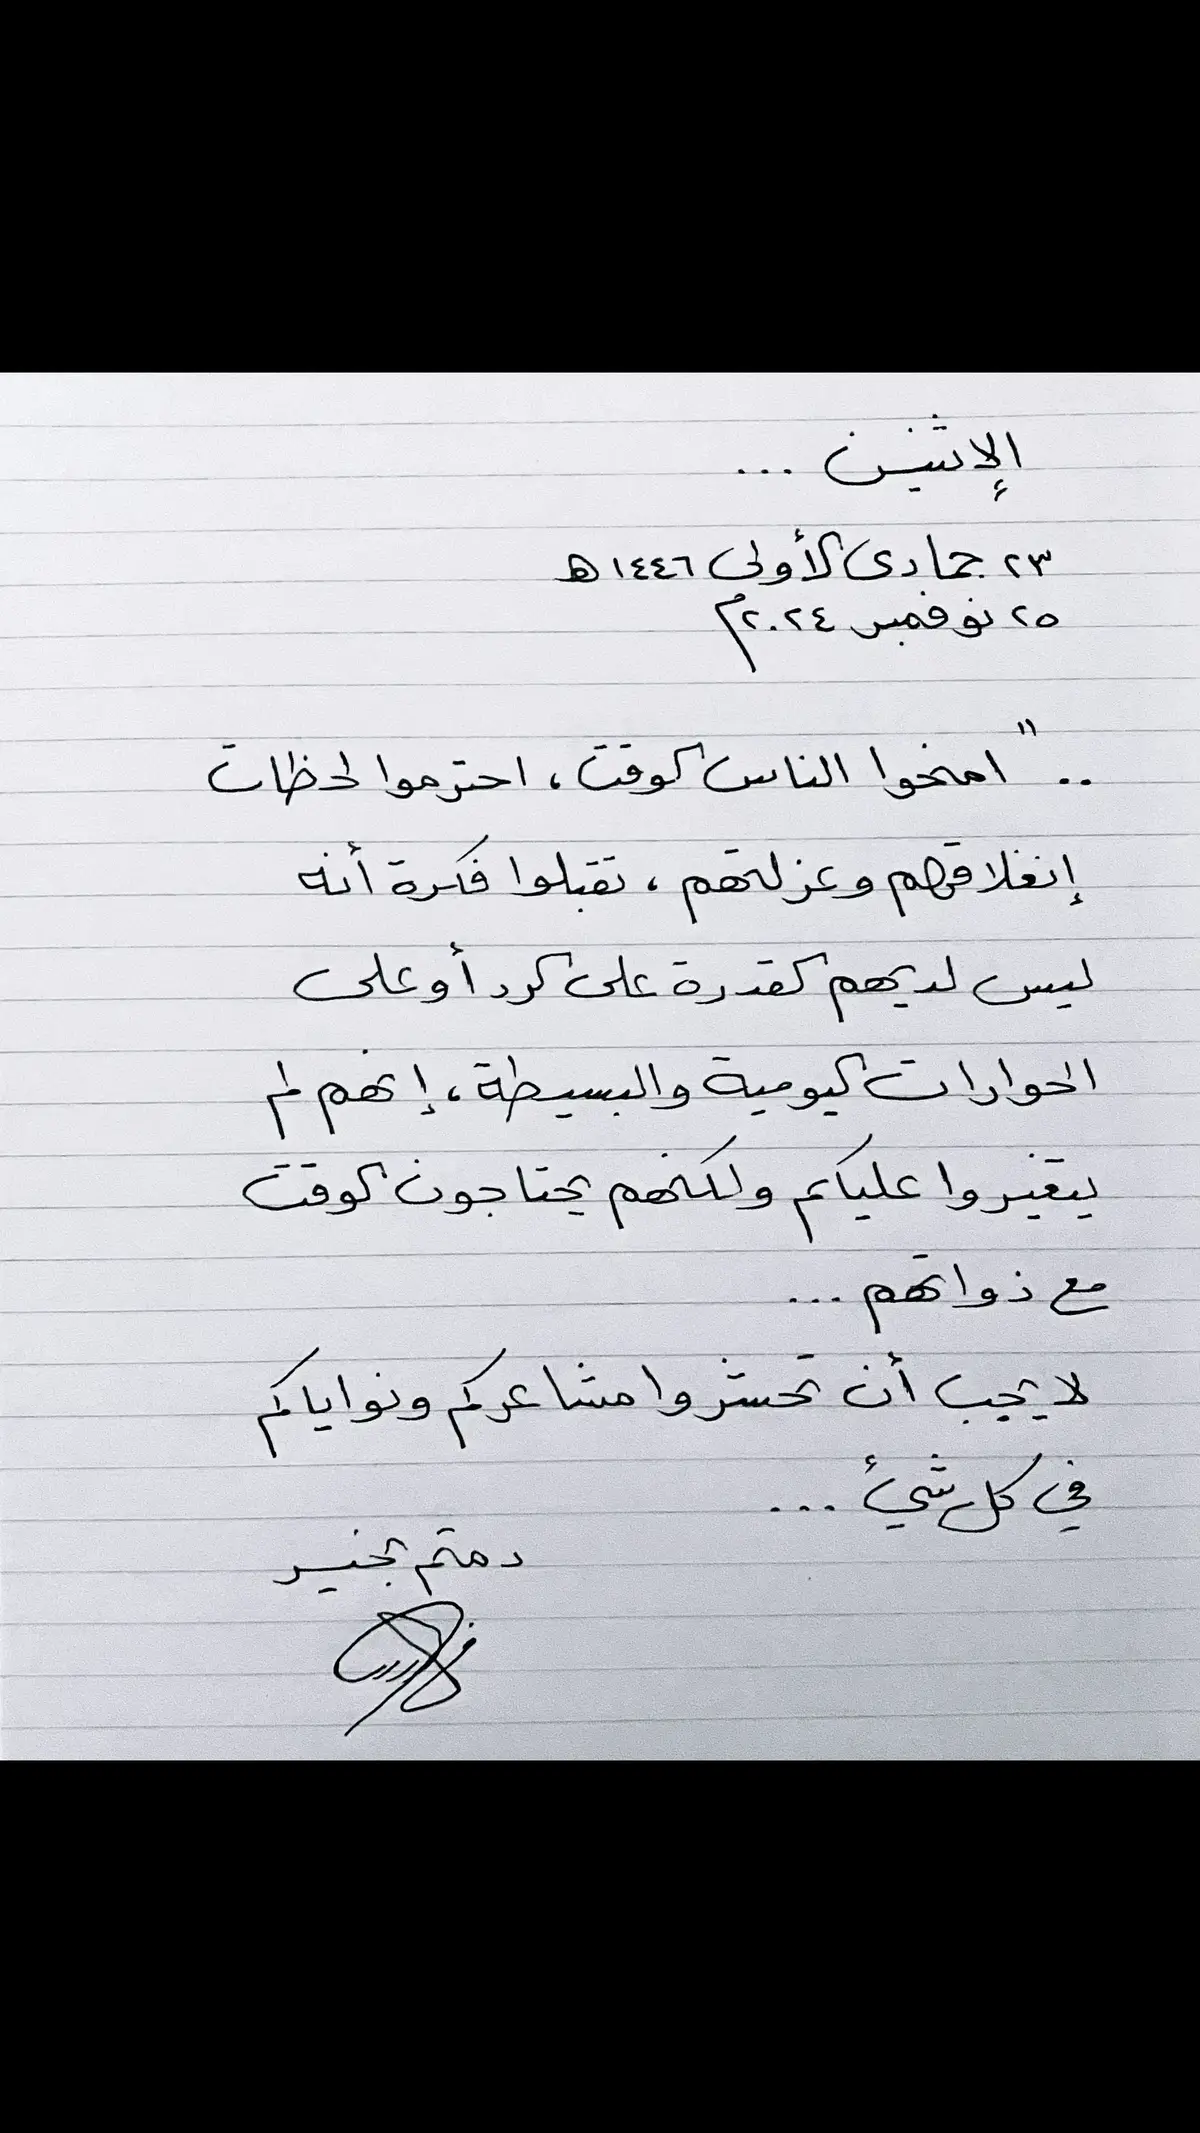 الإثنين ...
٢٣ جمادى الأولى ١٤٤٦هـ
٢٥ نوفمبر ٢٠٢٤م
.. " امنحوا الناس الوقت ، احترموا لحظات
إنغلاقهم وعزلتهم ، تقبلوا فكرة أنه
ليس لديهم القدرة على الرد أو على
الحوارات اليومية والبسيطة ، إنهم لم
يتغيروا عليكم ولكنهم يحتاجون الوقت
مع ذواتهم ...
لا يجب أن تحشروا مشاعركم ونواياكم
في كل شيئ ...
دمتم بخير